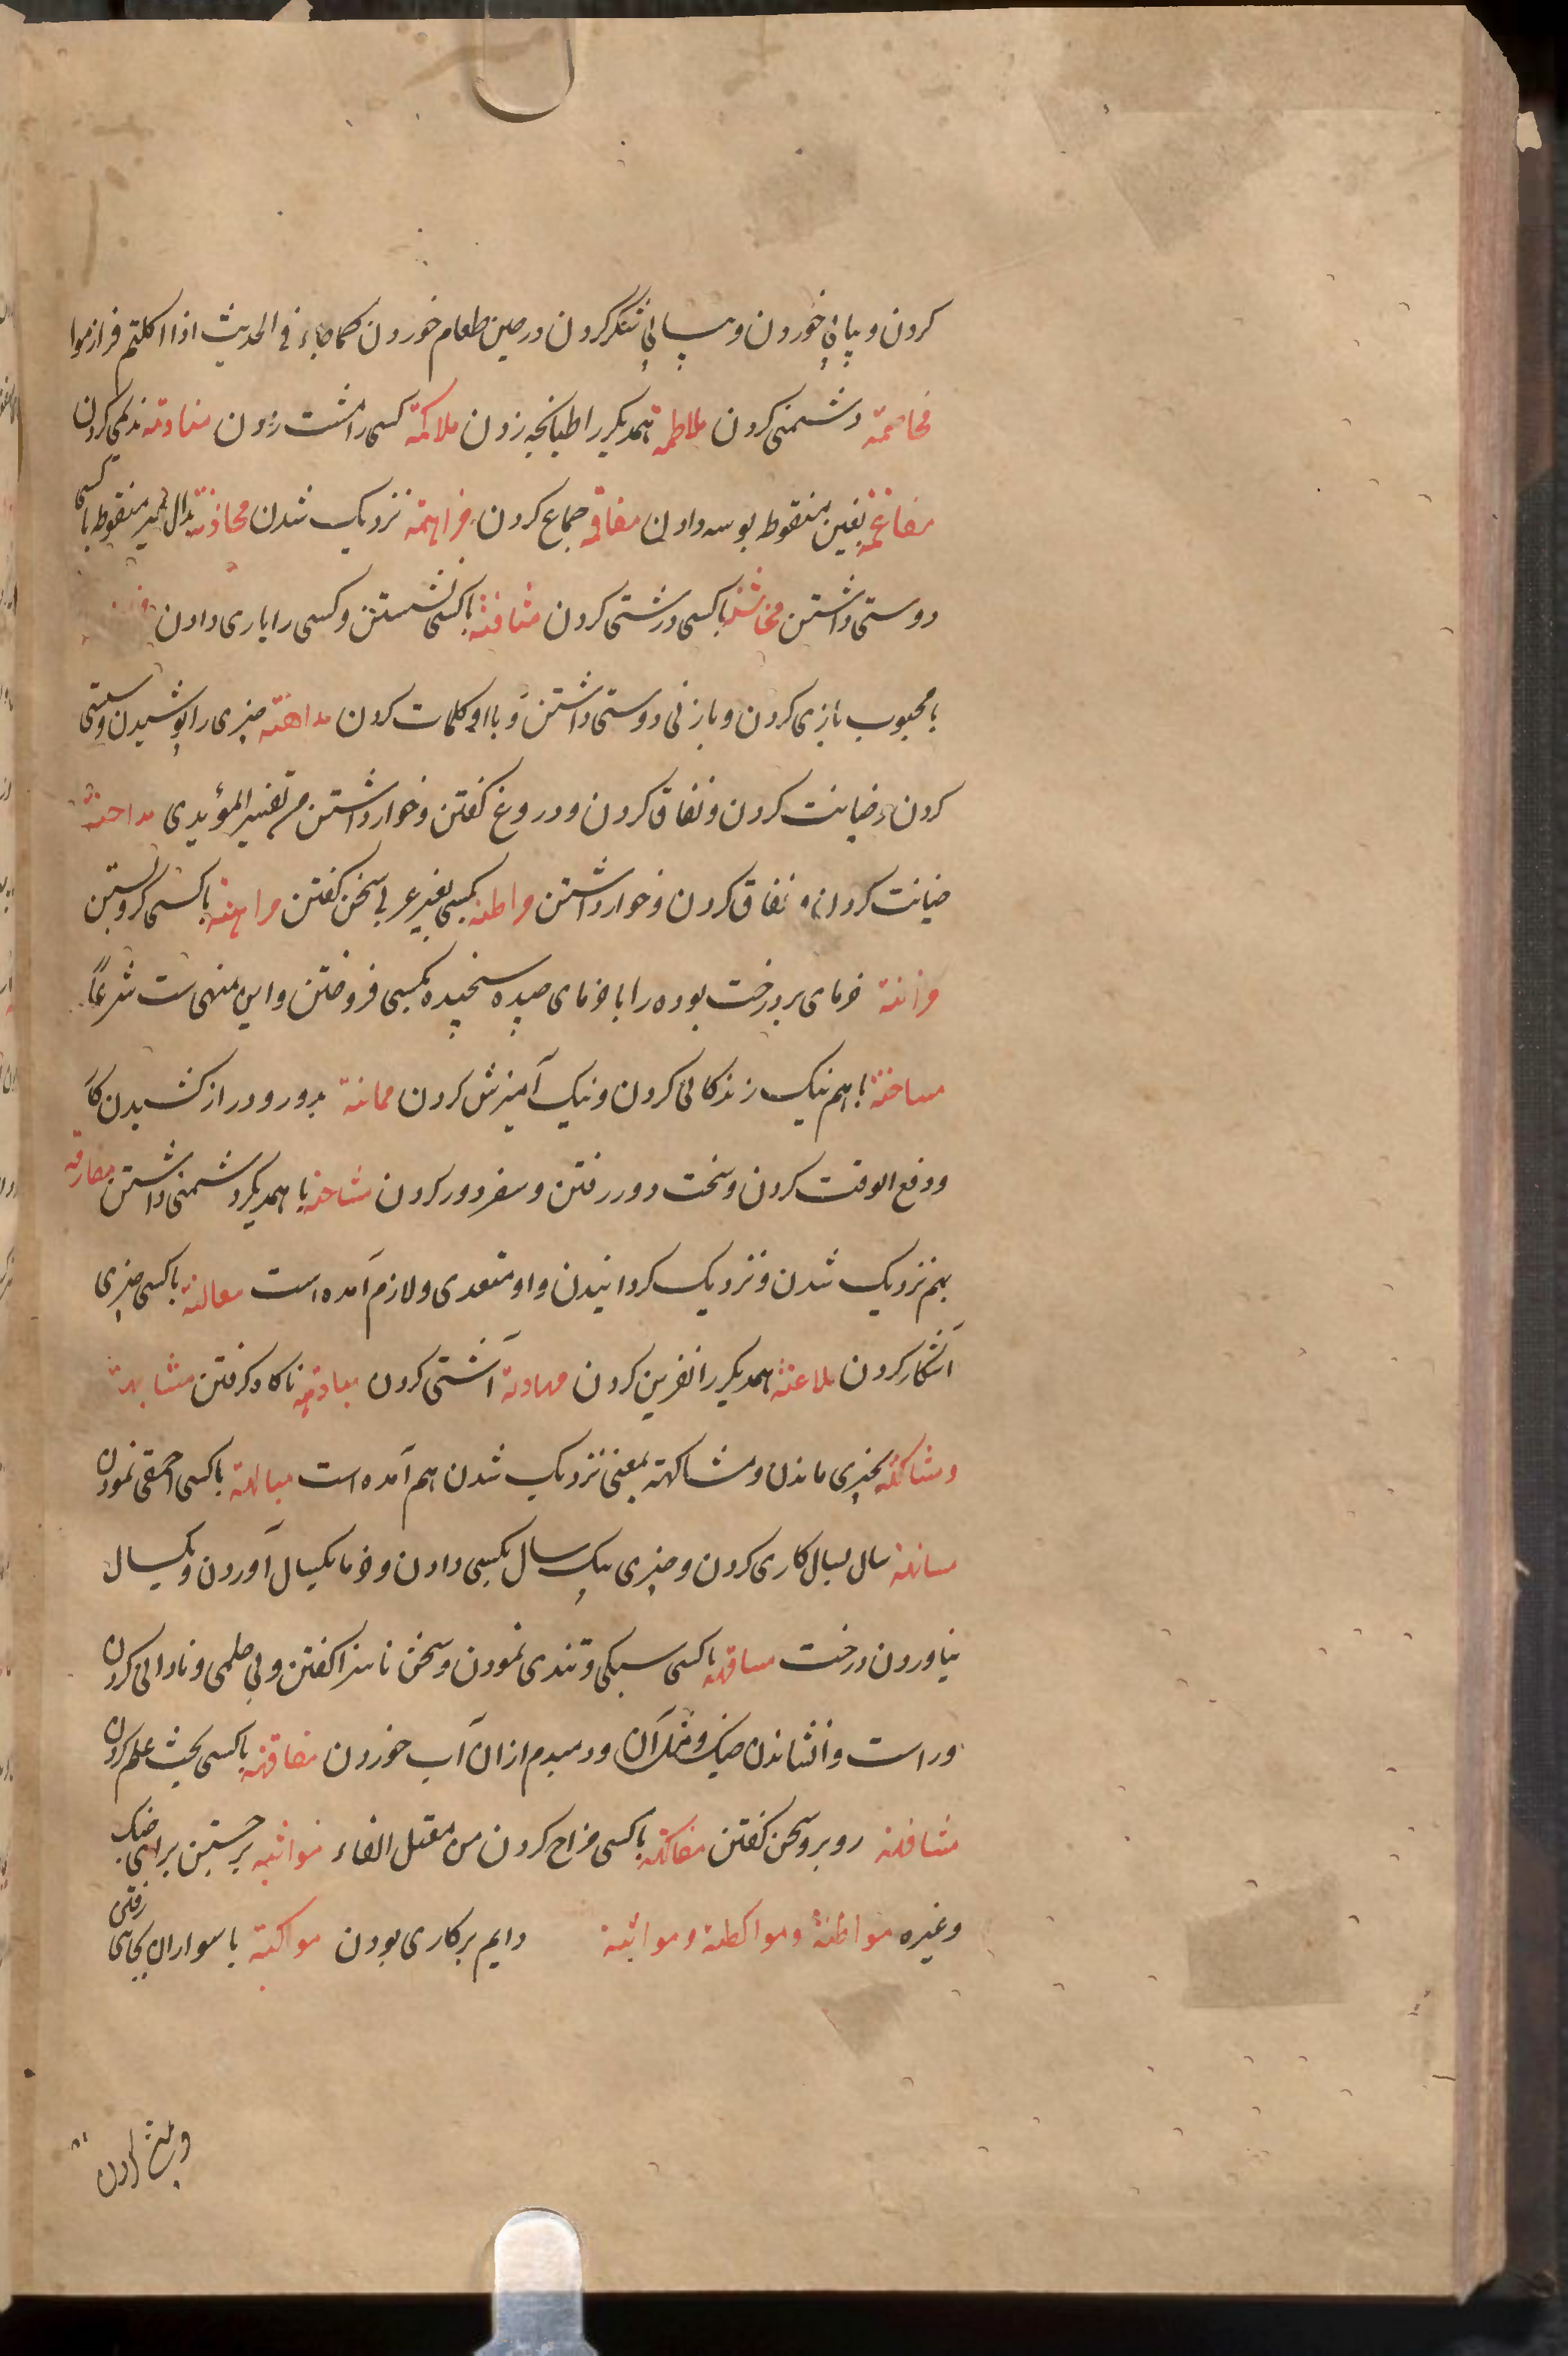 کردن و پیاپی خوردن و پیاپی شکر کردن در حین طعام خوردن کما جاء فی الحدیث اذا اکلتم فرازموا
مخاصمة دشمنی کردن ملاطمة همدیکر را طپانچه زدن ملاکمة کسی را مشت زدن منادمة ندیمی کردن
مفاغمة بغین منقوط بوسه دادن مفاقمة جماع کردن مزاهمة نزدیک شدن محاذنة بدال غیر منقوط با کسی
دوستی داشتن مخاشنة با کسی درشتی کردن مثافنة با کسی نشستن و کسی را یاری دادن
با محبوب بازی کردن و با زنی دوستی داشتن و با او کلمات کردن مداهنة چیزی را پوشیدن و سستی
کردن و خیانت کردن و نفاق کردن و دروغ کفتن و خوار داشتن من تفسیر المؤیدی مداحنة
خیانت کردن و نفاق کردن و خوار داشتن مراطنة بکسی بغیر عربی سخن کفتن مراهنة با کسی کرو بستن
مزابنة خرمای بر درخت بوده را با خرمای چیده سنجیده بکسی فروختن و این منهی ست شرعاً
مساخنة با هم نیک زندکانی کردن و نیک آمیزش کردن ممانة بدور و دراز کشیدن کار
و دفع الوقت کردن و سخت دور رفتن و سفر دور کردن مشاحنة با همدیکر دشمنی داشتن مقارنة
بهم نزدیک شدن و نزدیک کردانیدن و او متعدی و لازم آمده است معالنة با کسی چیزی
آشکار کردن ملاعنة همدیکر را نفرین کردن مهادنة آشتی کردن مبادهة ناکاه کرفتن مشابهة
و مشاکهة بچیزی ماندن و مشاکهة بمعنی نزدیک شدن هم آمده است مبالهة با کسی احمقی نمودن
مسانهة سال بسال کاری کردن و چیزی بیک سال بکسی دادن و خرما یکسال آوردن و یکسال
نیاوردن درخت مسافهة با کسی سبکی و تندی نمودن و سخن ناسزا کفتن و بی حلمی و نادانی کردن
و راست وانشاندن خیک و مثل آن و دمبدم از آن آب خوردن مفاقهة با کسی بحث علم کردن
مشافهة روبرو سخن کفتن مفاکهة با کسی مزاح کردن من معتل الفاء مواثبة برجستن برای جنک
وغیره مواظبة و مواکظة و مواثبة دایم بر کاری بودن مواکبة با سواران بجائی رفتن